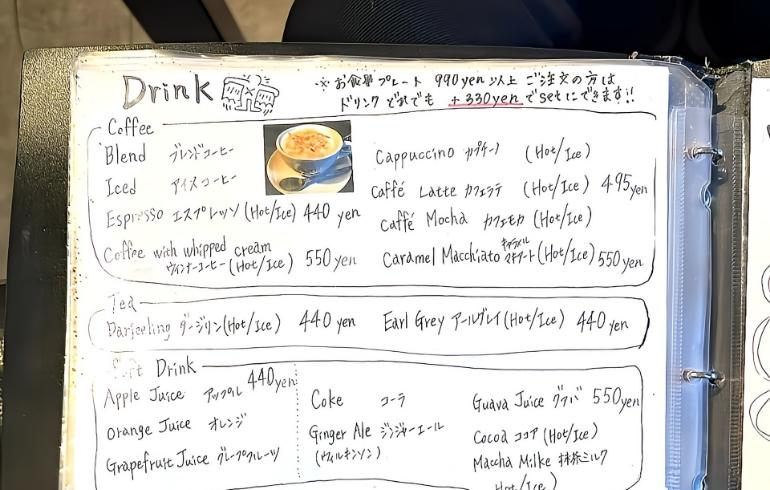 Drink
※お食事プレート 990yen以上 ご注文の方は
ドリンク どれでも +330yen でsetにできます!!
Coffee
Blend ブレンドコーヒー
Iced アイスコーヒー
Espresso エスプレッソ (Hot/Ice) 440 yen
Coffee with whipped cream
ウィンナーコーヒー (Hot/Ice) 550 yen
Cappuccino カプチーノ (Hot/Ice)
Caffé Latte カフェラテ (Hot/Ice) 495yen
Caffé Mocha カフェモカ (Hot/Ice)
Caramel Macchiato キャラメルマキアート (Hot/Ice) 550yen
Tea
Darjeeling ダージリン (Hot/Ice) 440 yen
Earl Grey アールグレイ (Hot/Ice) 440 yen
Soft Drink
Apple Juice アップル 440yen
Orange Juice オレンジ
Grapefruit Juice グレープフルーツ
Coke コーラ
Ginger Ale ジンジャーエール
(ウィルキンソン)
Guava Juice グァバ 550yen
Cocoa ココア (Hot/Ice)
Maccha Milke 抹茶ミルク
Hot/Ice)